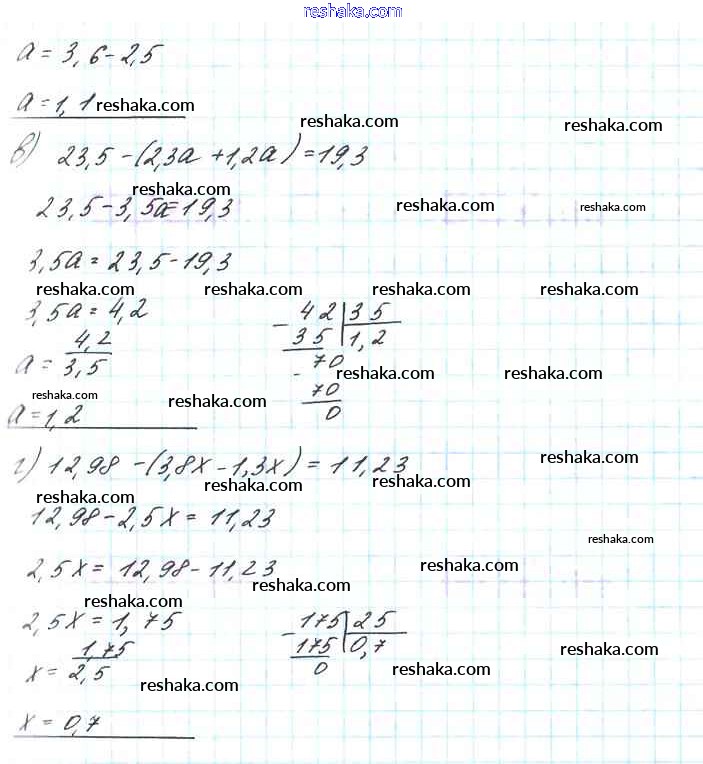 reshaka.com
a = 3,6 - 2,5
a = 1,1 reshaka.com
reshaka.com reshaka.com
в) 23,5 - (2,3a + 1,2a) = 19,3
reshaka.com
23,5 - 3,5a = 19,3 reshaka.com reshaka.com
3,5a = 23,5 - 19,3
reshaka.com reshaka.com reshaka.com reshaka.com
3,5a = 4,2
a = 4,2 / 3,5
42 | 35
35 | 1,2
70
70
0
reshaka.com reshaka.com
reshaka.com reshaka.com
a = 1,2
г) 12,98 - (3,8x - 1,3x) = 11,23 reshaka.com
reshaka.com reshaka.com reshaka.com
12,98 - 2,5x = 11,23
reshaka.com
2,5x = 12,98 - 11,23 reshaka.com
reshaka.com reshaka.com
2,5x = 1,75
x = 1,75 / 2,5
175 | 25
175 | 0,7
0
reshaka.com
reshaka.com reshaka.com
x = 0,7